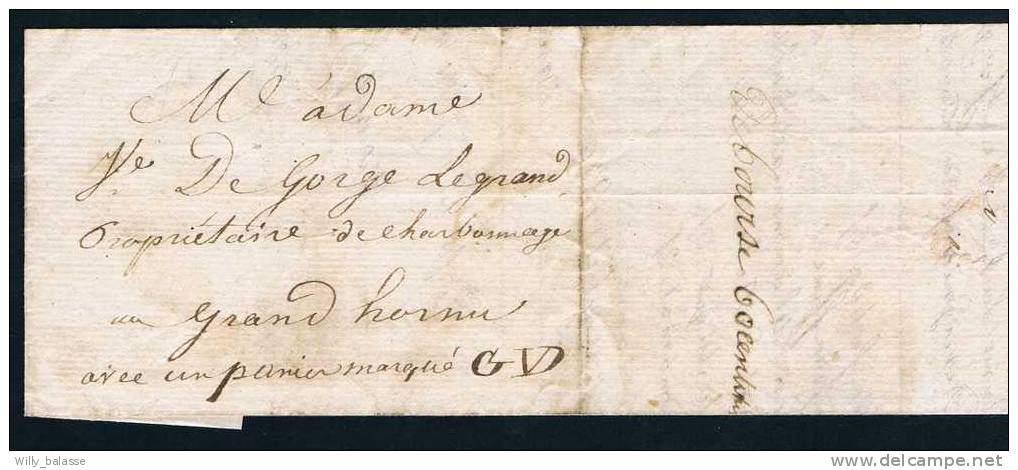 Me adame
Ve De Gorge Legrand
Propriétaire de charbonnage
au grand hornu
avec un panier marqué GVD
Debourse 60 cent
willy_balasse
delcampe.net